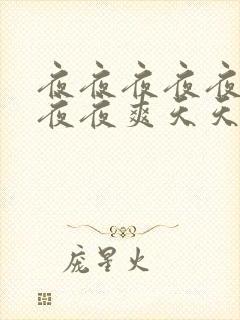 夜夜夜夜夜
夜夜爽天天
庞星火